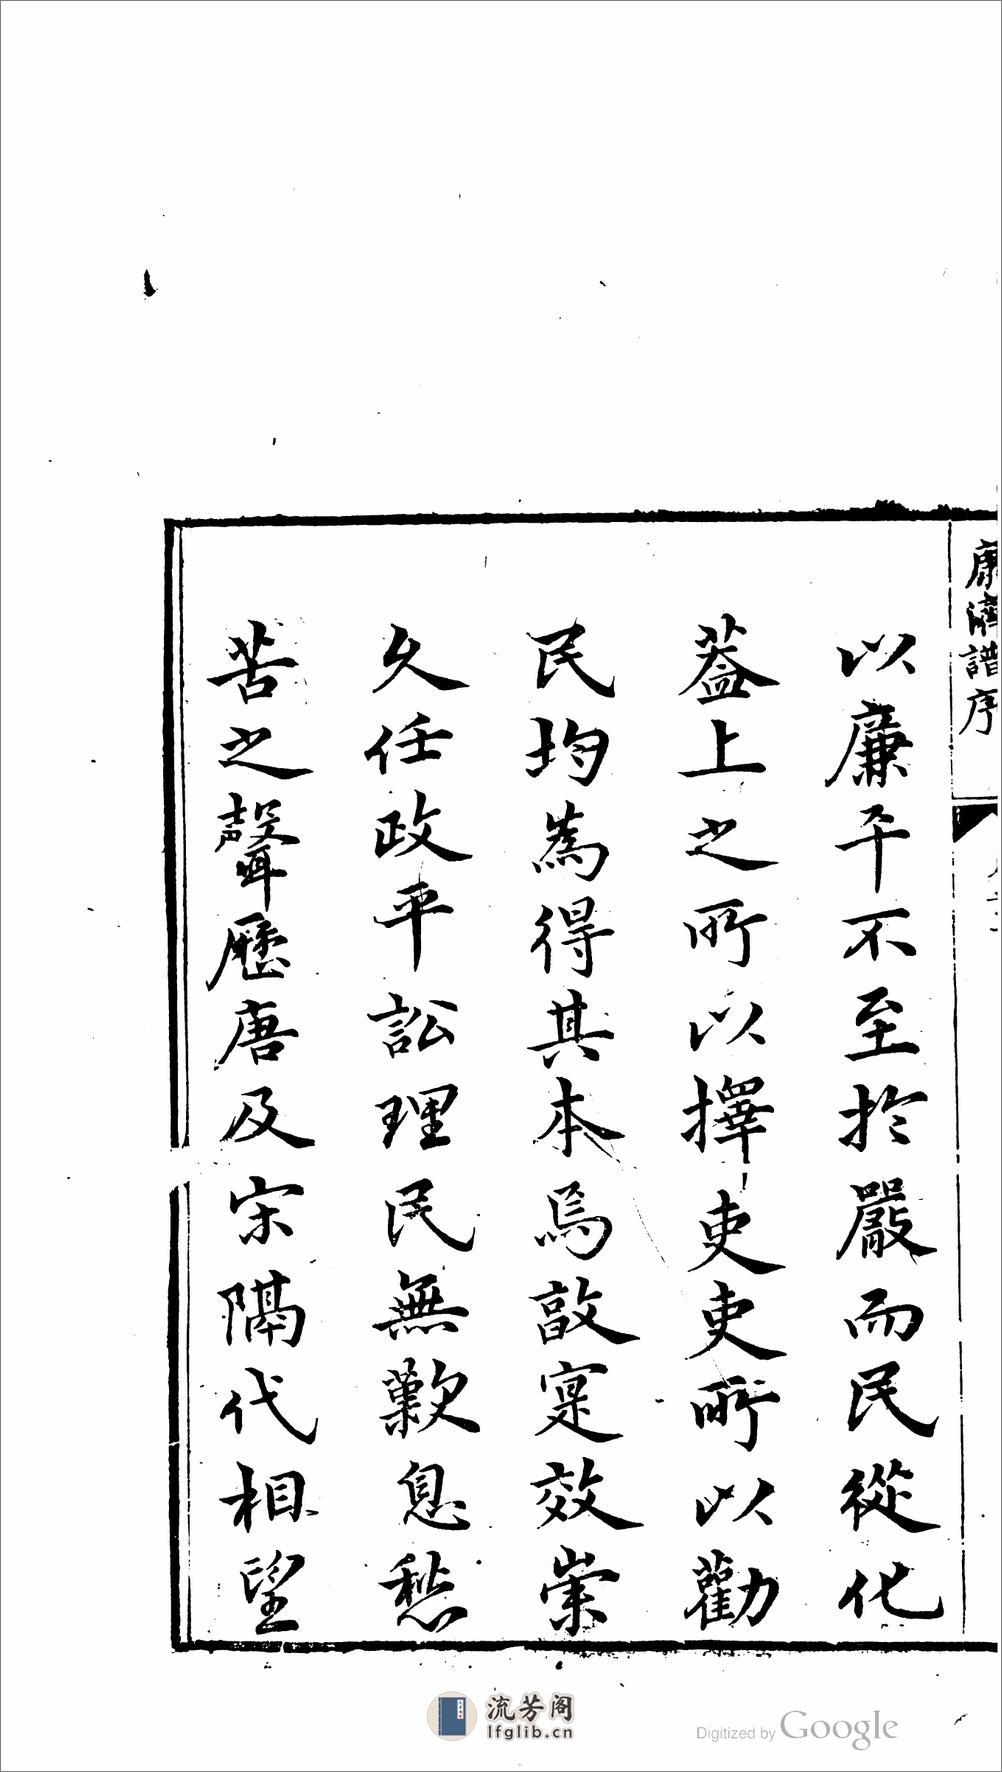 康濟譜序
以廉平不至於嚴而民從化
葢上之所以擇吏吏所以勸
民均為得其本焉敨寔效崇
久任政平訟理民無歎息愁
苦之聲歷唐及宋隔代相望
流芳阁
lfglib.cn
Digitized by Google